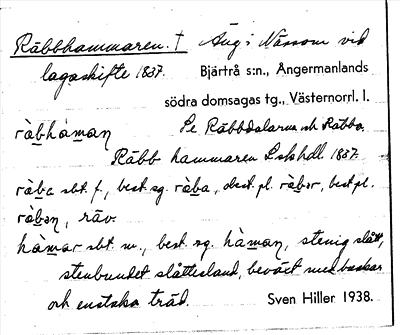 Räbbhammaren. † Äng i Nässom vid
lagaskifte 1837. Bjärtrå s:n., Ångermanlands
södra domsagas tg., Västernorrl. l.
ràb̲hàm̲an̲ Se Räbbdalarna och Räbba.
Räbb hammaren Lskhdl. 1837.
ràba sbt. f., best. sg. ràb̲a, obest. pl. ràb̲ər, best. pl.
ràb̲ən, räv.
hamar sbt. m., best. sg. hàm̲an, stenig slått,
stenbundet slåttesland, beväxt med buskar
och enstaka träd. Sven Hiller 1938.